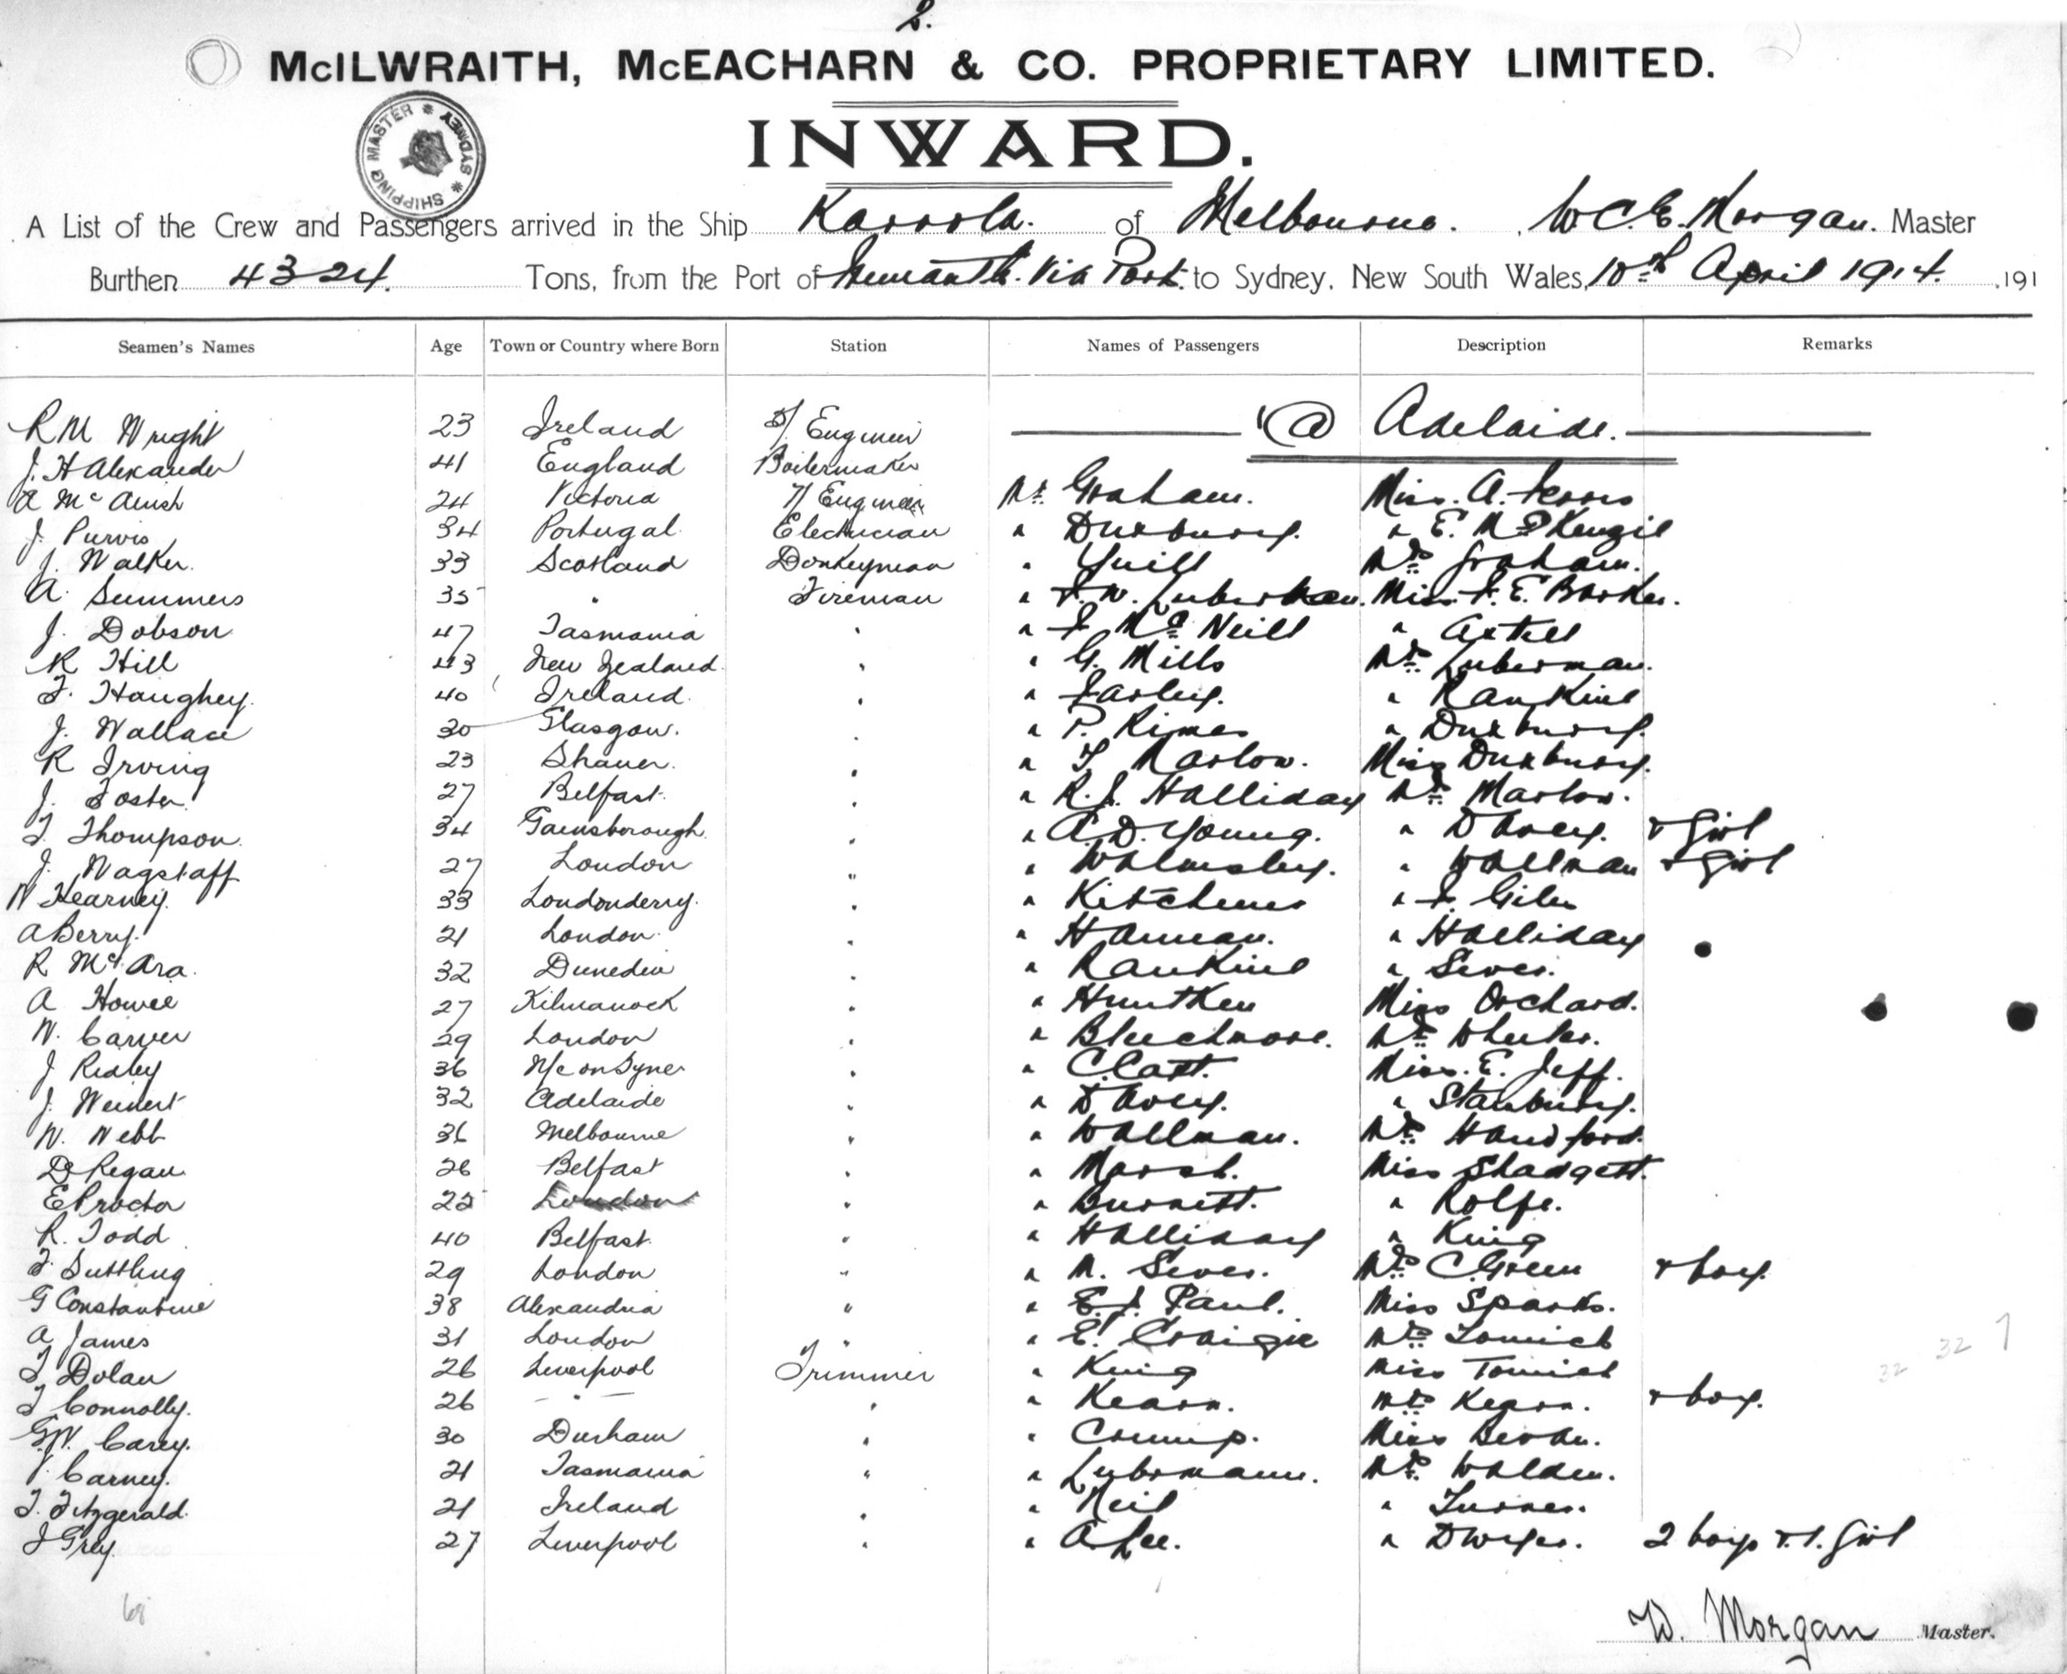 2.
McILWRAITH, McEACHARN & CO. PROPRIETARY LIMITED.
SHIPPING MASTER * SYDNEY *
INWARD.
A List of the Crew and Passengers arrived in the Ship Karoola. of Melbourne. , W.C.E. Morgan. Master
Burthen 4324. Tons, from the Port of Fremantle. Via Ports. to Sydney, New South Wales, 10th April 1914. ,191
Seamen's Names Age Town or Country where Born Station Names of Passengers Description Remarks
R M Wright 23 Ireland 5/ Engineer @ Adelaide.
J. H Alexander 41 England Boilermaker
A McAinsh 24 Victoria 7/ Engineer Mr. Graham. Miss. A. Ferris
J. Purvis 34 Portugal Electrician " Duxbury. " E. McKenzie
J. Walker. 33 Scotland Donkeyman " Yuill Mrs Graham.
A. Summers 35 " Fireman " Miss. F. E. Barker.
J. Dobson 47 Tasmania " " J McNeill " Axtell
R Hill 43 New Zealand " " G. Mills Mrs Luberman.
F. Haughey. 40 Ireland. " " Farley. " Rankine
J. Wallace 30 Glasgow. " " P. Rimes " Duxbury.
R Irving 23 " " T Marlow. Miss Duxbury.
J. Foster 27 Belfast. " " R. J. Halliday Mrs Marlow.
T. Thompson. 34 Gainsborough. " " A. D. Young. " Davey. & Girl
J. Wagstaff 27 London " " Walmsley. " Wallman & Girl
W Kearney. 33 Londonderry. " " Kitchener " J. Giles
A Berry. 21 London. " " Hannan. " Halliday
R McAra. 32 Dunedin " " Rankine " Siver.
A Howie 27 Kilmarnock " " Miss Orchard.
W. Carver 29 London " " Bleechmore. Mrs Wheeler.
J Ridley 36 N/c on Tyne " " C. Catt. Miss. E. Jeff.
J. Weinert 32 Adelaide " " Davey. " Stanbury.
W. Webb 36 Melbourne " " Wallman. Mrs Handford.
D Regan 26 Belfast " " Marsh. Miss Shadgett.
E Proctor 22 London " " Burnett. " Rolfe.
R. Todd 40 Belfast. " " Halliday " King
F. Suttling 29 London " " M. Siver. Mrs C. Green & boy.
G Constantine 38 Alexandria " " E. J. Paul. Miss Sparks.
A James 31 London " " E. Craigie Mrs Tomich
T Dolan 26 Liverpool Trimmer " King Miss Tomich
T Connolly. 26 " " " Kearn. Mrs Kearn. & boy.
G.W. Carey. 30 Durham " " Crump. Miss
J. Carney. 21 Tasmania " " Lubermann. Mrs. Walden.
T. Fitzgerald. 21 Ireland " " Neil " Turner.
J Grey. 27 Liverpool " " A. Lee. " Dwyer. 2 boys & 1. Girl
32 32 7
68
W. Morgan Master.